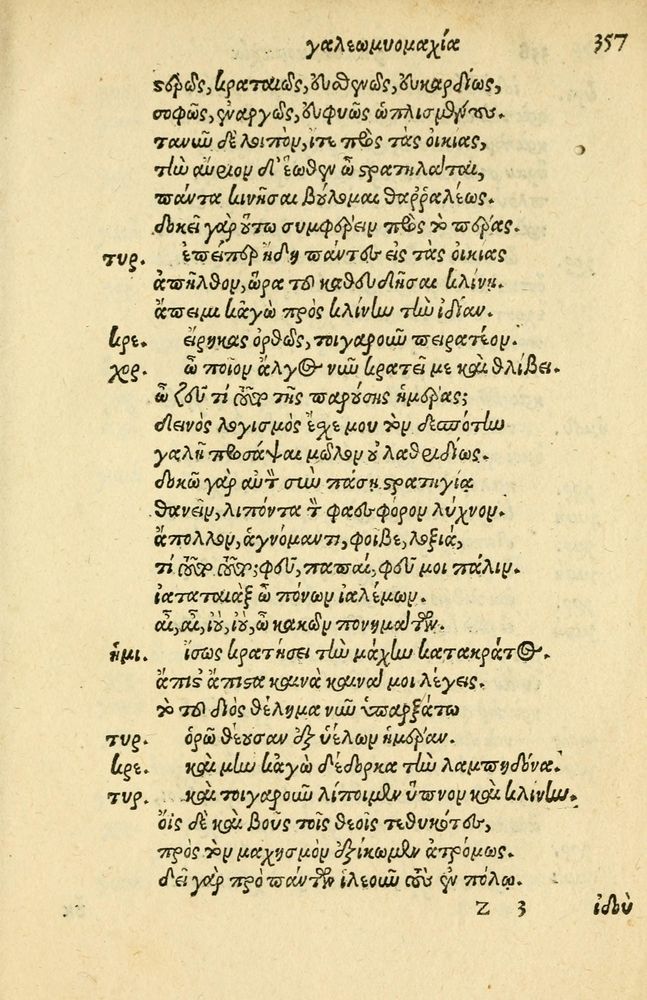 γαλεωμυομαχία 357
στερρῶς, κραταιῶς, εὐσθενῶς, εὐκαρδίως,
σοφῶς, ἐναργῶς, εὐφυῶς ὡπλισμένοι.
τανῦν δὲ λοιπὸν, ἴτε πρὸς τὰς οἰκίας,
τὴν αὔριον δ' ἕωθεν ὦ στρατηλάται,
πάντα κινῆσαι βούλομαι θαρῥαλέως.
δοκεῖ γὰρ οὕτω συμφέρειν πρὸς τὸ πέρας.
τυρ. ἐπείπερ ἤδη πάντες εἰς τὰς οἰκίας
ἀπῆλθον, ὥρα τοῦ καθευδῆσαι κλίνῃ.
ἄπειμι κἀγὼ πρὸς κλίνην τὴν ἰδίαν.
κρε. εἴρηκας ὀρθῶς, τοιγαροῦν πειρατέον.
χορ. ὦ ποῖον ἄλγος νῦν κρατεῖ με καὶ θλίβει.
ὦ ζεῦ τί τῆς παρούσης ἡμέρας;
δεινὸς λογισμὸς ἔχε μου τὸν δεσπότην
γαλῇ προσάψαι μῶλον οὐ λαθριδίως.
δοκῶ γὰρ αὐτὸν σὺν πάσῃ στρατηγίᾳ
θανεῖν, λιπόντα τὸν φαοσφόρον λύχνον.
ἄπολλον, ἁγνόμαντι, φοῖβε, λοξία,
τί φεῦ, παπαί, φεῦ μοι πάλιν.
ἰαταταιὰξ ὦ πόνων ἰαλέμων.
αἲ, αἲ, ἰοὺ, ἰοὺ, ὦ κακῶν πονημάτων.
ἡμι. ἴσως κρατήσει τὴν μάχην κατακράτος.
ἄπιστ' ἄπιστα καινὰ καινά μοι λέγεις.
τὸ τοῦ διὸς θέλημα νῦν ὑπαρξάτω
τυρ. ὁρῶ θέουσαν ἐξ ὑέλων ἡμέραν.
κρε. καὶ μὴν κἀγὼ δέδορκα τὴν λαμπηδόνα.
τυρ. καὶ τοιγαροῦν λίποιμεν ὕπνον καὶ κλίνην.
ὄϊς δὲ καὶ βοῦς τοῖς θεοῖς τεθυκότες,
πρὸς τὸν μαχησμὸν ἐξίκωμεν ἀτρόμως.
δεῖ γὰρ πρὸ πάντων ἱλεοῦν τοὺς ἐν πόλῳ.
Z 3 ἰδοὺ